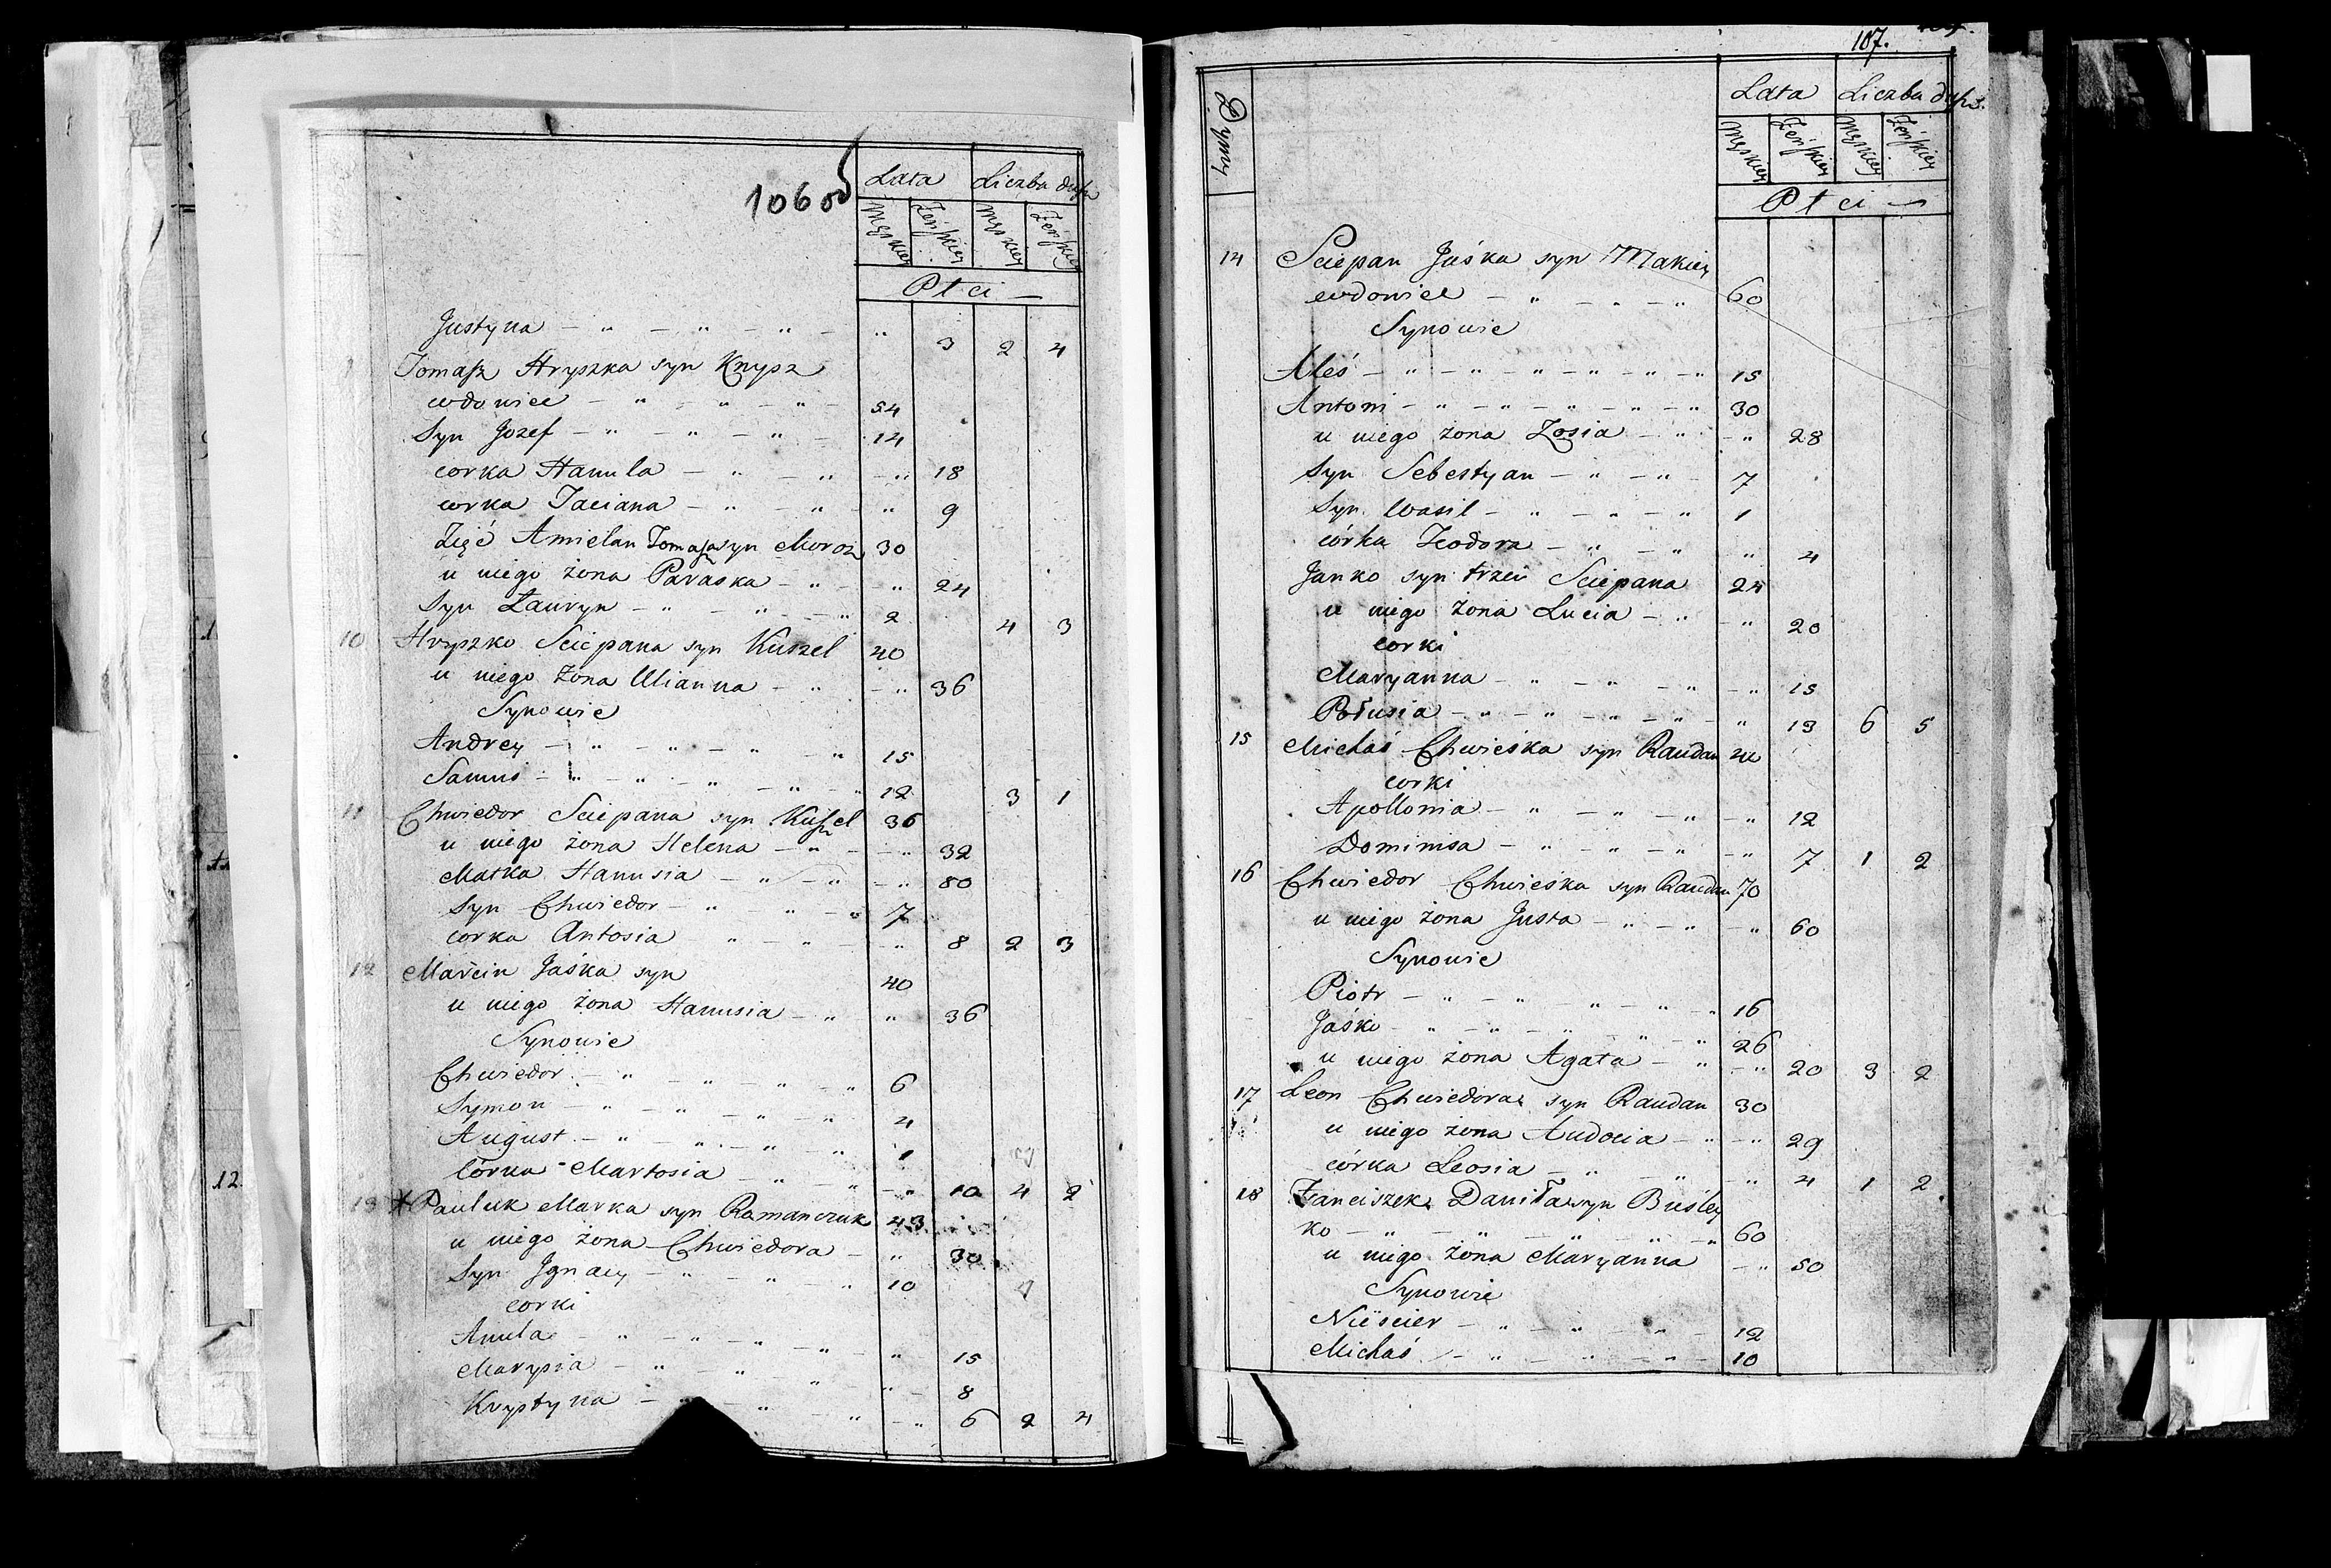 106 об
Lata Liczba dusz
Męskiey Żeńskiey Męskiey Żeńskiey
Płci
Justyna — „ — „ — „ — „ 3 2 4
9 Tomasz Hryszka syn Knysz
wdowiec — „ — „ — „ — 54
Syn Jozef — „ — „ — „ — 14
corka Hanula — „ — „ — „ 18
corka Taciana — „ — „ — „ 9
Zięć Amielan Tomasza syn Moroz 30
u niego żona Paraska — „ — „ 24
Syn Łauryn — „ — „ — „ 2 4 3
10 Hryszko Sciepana syn Kuszel 40
u niego żona Ulianna — „ — „ 36
Synowie
Andrey — „ — „ — „ — „ 15
Samuś — „ — „ — „ — „ — „ 12 3 1
11 Chwiedor Sciepana syn Kuszel 36
u niego żona Helena — „ — „ 32
Matka Hanusia — „ — „ — „ 80
Syn Chwiedor — „ — „ — „ 7
corka Antosia „ — „ — „ 8 2 3
12 Marcin Jaśka syn 40
u niego żona Hanusia — „ „ 36
Synowie
Chwiedor — „ — „ — „ — „ 6
Symon — „ — „ — „ — „ 4
August — „ — „ — „ „ 1
Córka Martosia — „ — „ 10 4 2
13 * Pauluk Marka syn Ramanczuk 43
u niego żona Chwiedora — „ 30
Syn Jgnacy — „ — „ „ 10
corki
Anula — „ — „ — „ — „ — „ 15
Marysia — „ — „ — „ — „ — 8
Krystyna — „ — „ — „ — „ 6 2 4
107.
Dymy
Lata Liczba dusz.
Męskiey Żeńskiey Męskiey Żeńskiey
Płci —
14 Sciepan Jaśka syn Makiey
wdowiec — „ — „ — „ 60
Synowie
Aleś — „ — „ — „ — „ — „ — „ 15
Antoni — „ — „ — „ — „ — „ 30
u niego żona Zosia — „ — „ 28
Syn Sebestyan — „ — „ — 7
Syn Wasil — „ — „ — „ 1
córka Teodora — „ — „ „ 4
Janko syn trzeci Sciepana 24
u niego żona Lucia — „ — „ 20
corki
Maryanna — „ — „ — „ — „ 15
Połusia — „ — „ — „ — „ — „ 13 6 5
15 Michaś Chwieśka syn Raudan 40
corki
Apollonia — „ — „ — „ — „ 12
Dominisa — „ — „ — „ — „ 7 1 2
16 Chwiedor Chwieśka syn Raudan 70
u niego żona Justa — „ — „ — „ 60
Synowie
Piotr — „ — „ „ — „ — „ 16
Jaśko — „ — „ — „ — „ — „ 26
u niego żona Agata — „ — „ 20 3 2
17 Leon Chwiedora syn Raudan 30
u niego żona Audocia — „ — „ 29
córka Leosia — „ — „ — „ 4 1 2
18 Franciszek Daniła syn Buśley
ko — „ — „ — „ — „ — „ 60
u niego żona Maryanna — „ 50
Synowie
Nieścier — „ — „ — „ — 12
Michaś — „ — „ — „ — 10
12